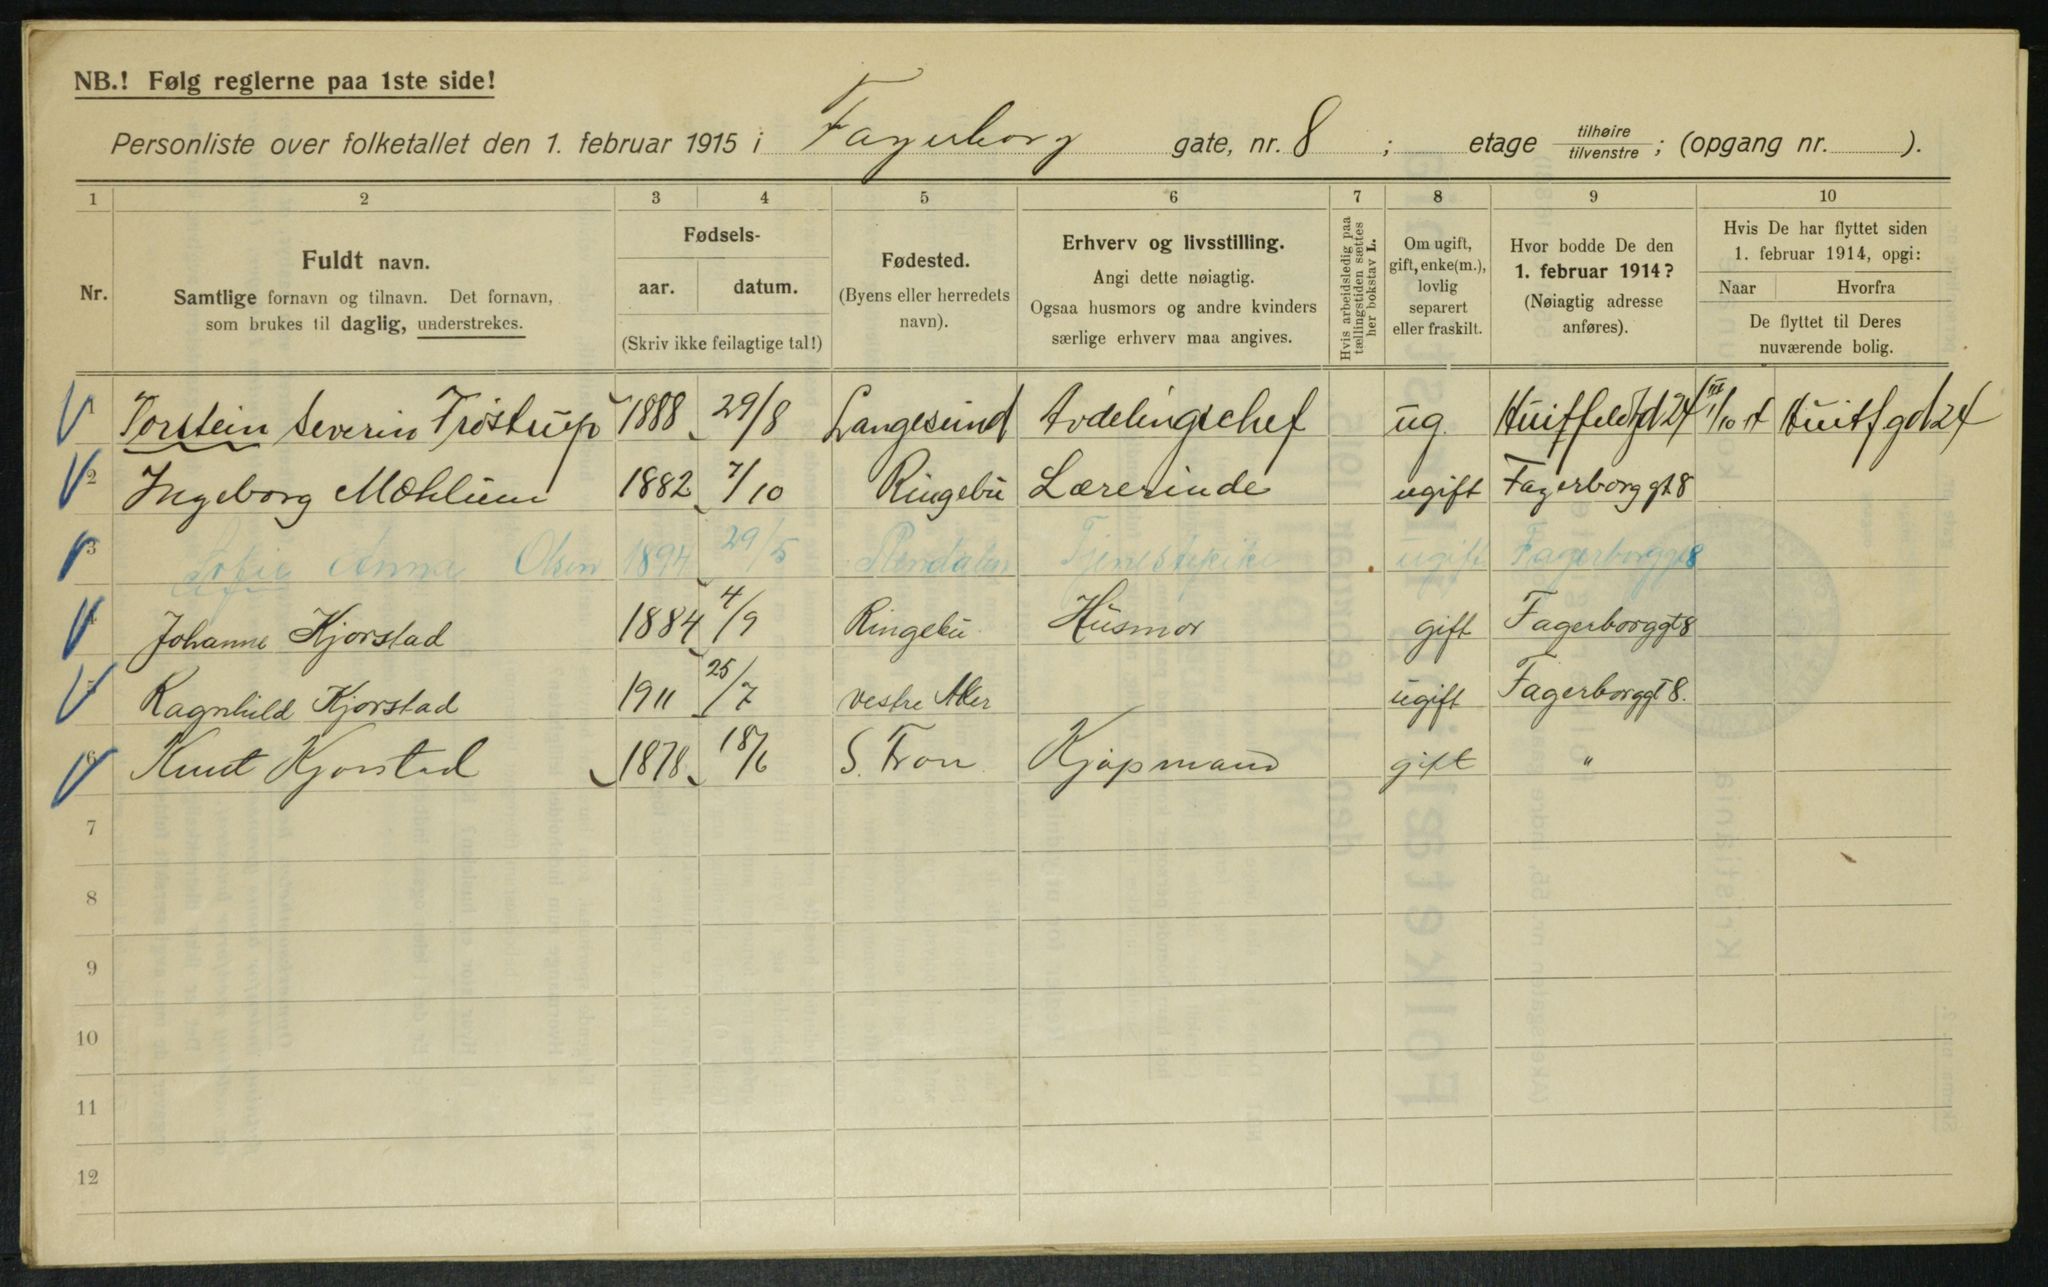 NB.! Følg reglerne paa 1ste side!
Personliste over folketallet den 1. februar 1915 i Fagerborg gate, nr. 8 ; etage tilhøire/tilvenstre ; (opgang nr. ).
1 2 3 4 5 6 7 8 9 10
Nr.
Fuldt navn.
Samtlige fornavn og tilnavn. Det fornavn,
som brukes til daglig, understrekes.
Fødsels-
aar. datum.
(Skriv ikke feilagtige tal!)
Fødested.
(Byens eller herredets
navn).
Erhverv og livsstilling.
Angi dette nøiagtig.
Ogsaa husmors og andre kvinders
særlige erhverv maa angives.
Hvis arbeidsledig paa
tællingstiden sættes
her bokstav L.
Om ugift,
gift, enke(m.),
lovlig
separert
eller fraskilt.
Hvor bodde De den
1. februar 1914?
(Nøiagtig adresse
anføres).
Hvis De har flyttet siden
1. februar 1914, opgi:
Naar Hvorfra
De flyttet til Deres
nuværende bolig.
1 Torstein Severin Trøstrup 1888 29/8 Langesund Avdelingschef ug. Huitfeldtgd 24 1/10 14 Huitfgd 24
2 Ingeborg Mæhlum 1882 7/10 Ringebu Lærerinde ugift Fagerborggt 8
3 Sofie Anna Olsen 1894 29/5 Rendalen Tjenestepike ugift Fagerborggt 8
4 Johanne Kjorstad 1884 4/9 Ringebu Husmor gift Fagerborggt 8
5 Ragnhild Kjorstad 1911 25/7 vestre Aker ugift Fagerborggt 8.
6 Knut Kjorstad 1878 18/6 S. Fron Kjøpmand gift "
7
8
9
10
11
12